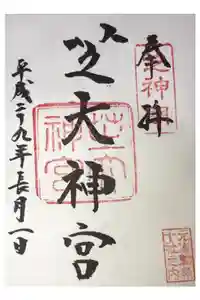 奉拝
芝大神宮
平成二十九年長月一日